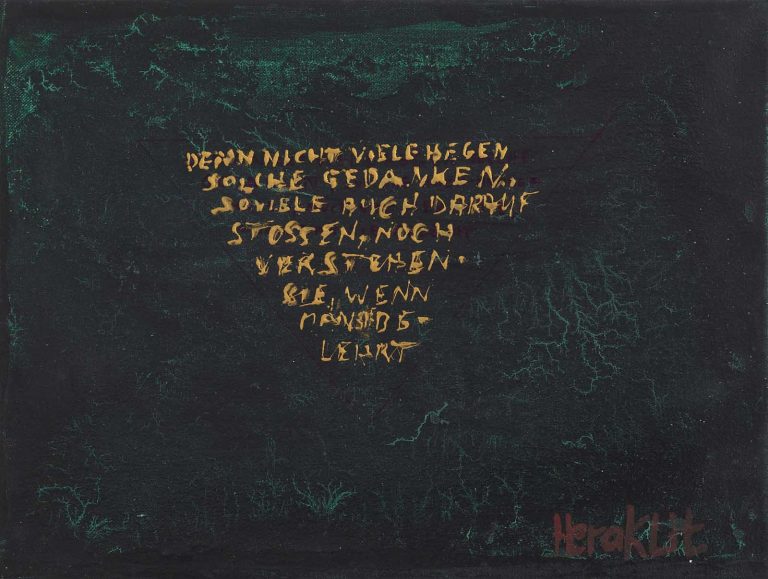 DENN NICHT VIELE HEGEN
SOLCHE GEDANKEN,
SOVIELE AUCH DARAUF
STOSSEN, NOCH
VERSTEHEN
SIE, WENN
MAN SIE BE-
LEHRT
Heraklit.